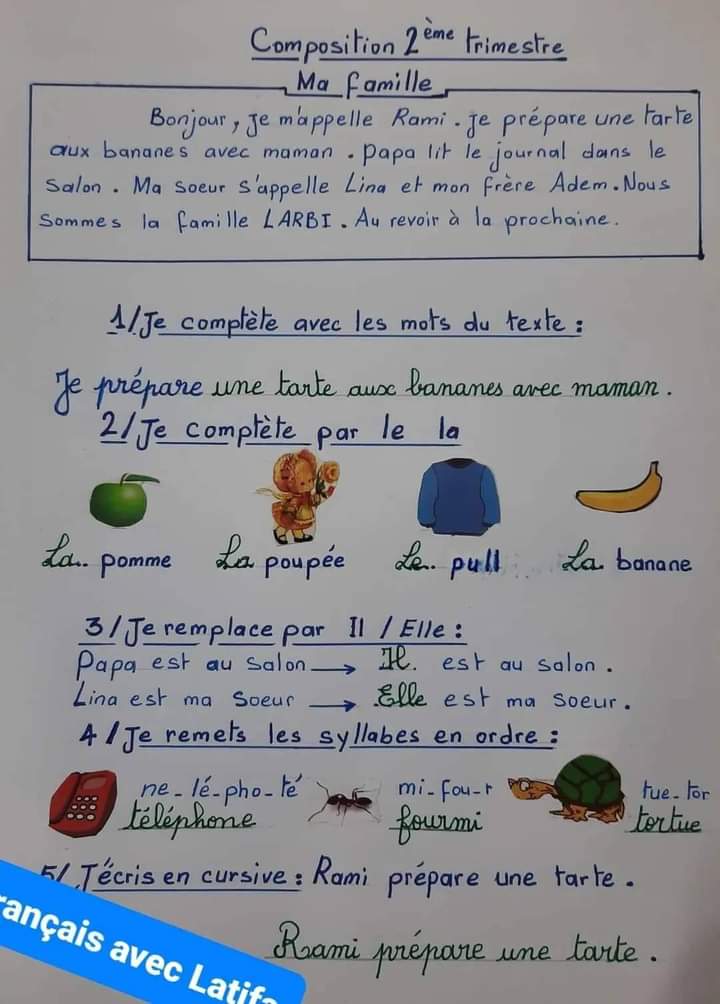 Composition 2ème trimestre
Ma famille
Bonjour, Je m'appelle Rami. je prépare une tarte
aux bananes avec maman. papa lit le journal dans le
salon. Ma soeur s'appelle Lina et mon frère Adem. Nous
sommes la famille LARBI. Au revoir à la prochaine.
1/Je complète avec les mots du texte :
Je prépare une tarte aux bananes avec maman.
2/Je complète par le la
La.. pomme La poupée Le.. pull La. banane
3/Je remplace par Il / Elle :
Papa est au salon → Il. est au salon.
Lina est ma soeur → .Elle est ma soeur.
4/Je remets les syllabes en ordre :
ne-lé-pho-té mi-fou-r tue-tor
téléphone fourmi tortue
5/ J'écris en cursive : Rami prépare une tarte.
Rami prépare une tarte.
rançais avec Latifa